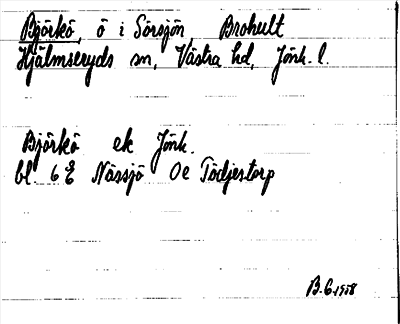 Björkö, ö i Sörsjön, Brohult
Hjälmseryds sn, Västra hd, Jönk. l.
Björkö ek Jönk.
bl. 6 E Nässjö Oe Tödjestorp
B. G. 1958